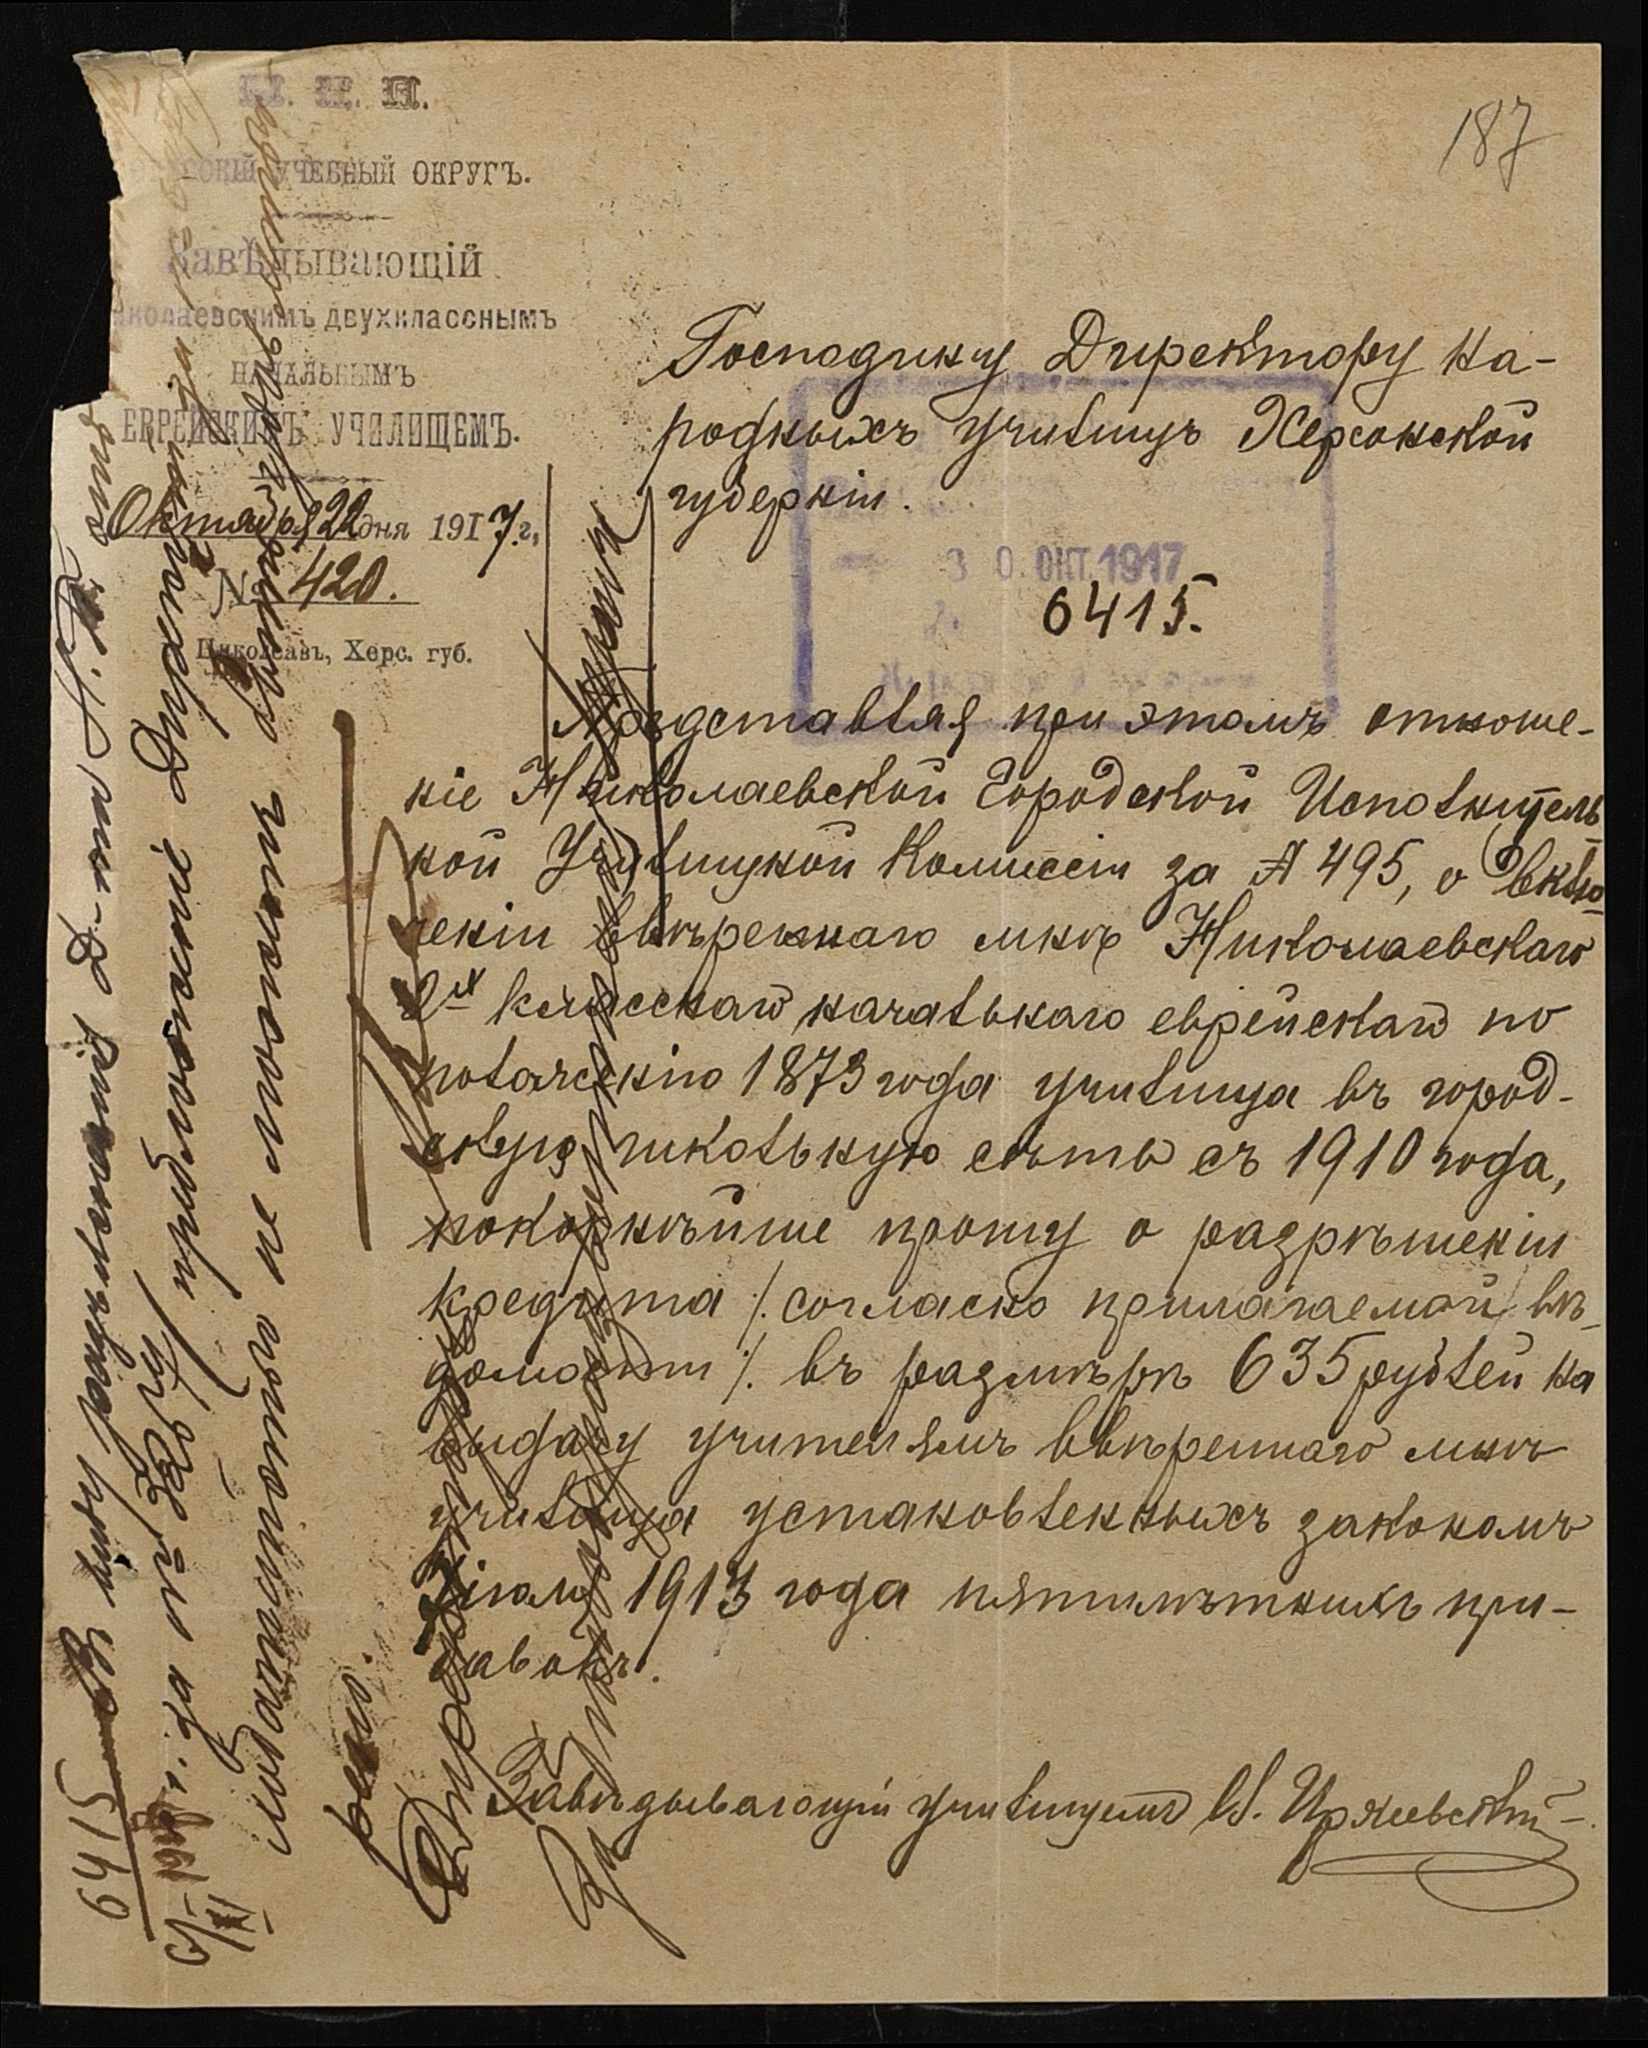 М. Н. П.
187
УЧЕБНЫЙ ОКРУГЪ.
Завѣдывающій
Николаевскимъ двухкласснымъ
НАЧАЛЬНЫМЪ
ЕВРЕЙСКИМЪ УЧИЛИЩЕМЪ.
Октября 22 дня 1917 г.
№ 420.
Николаевъ, Херс. губ.
Господину Директору на-
родныхъ училищъ Херсонской
губерніи.
30 ОКТ. 1917
6415.
Представляя при этомъ отноше-
ніе Николаевской Городской Исполнитель
ной Училищной Комиссіи за № 495, о вклю-
ченіи ввѣреннаго мнѣ Николаевскаго
2х класснаго начальнаго еврейскаго по
положенію 1873 года училища въ город-
скую школьную сѣть съ 1910 года,
покорнѣйше прошу о разрѣшеніи
кредита /. согласно прилагаемой вѣ-
домости /. въ размѣрѣ 635 рублей на
выдачу учителямъ ввѣреннаго мнѣ
училища установленныхъ закономъ
7 іюля 1913 года пятилѣтнихъ при-
бавокъ.
Завѣдывающій училищемъ
6415 Въ виду разъясненія Д-та Н. П.
за № предложеніе Дирекціи
ходатайство не можетъ быть
Директоръ народныхъ училищъ